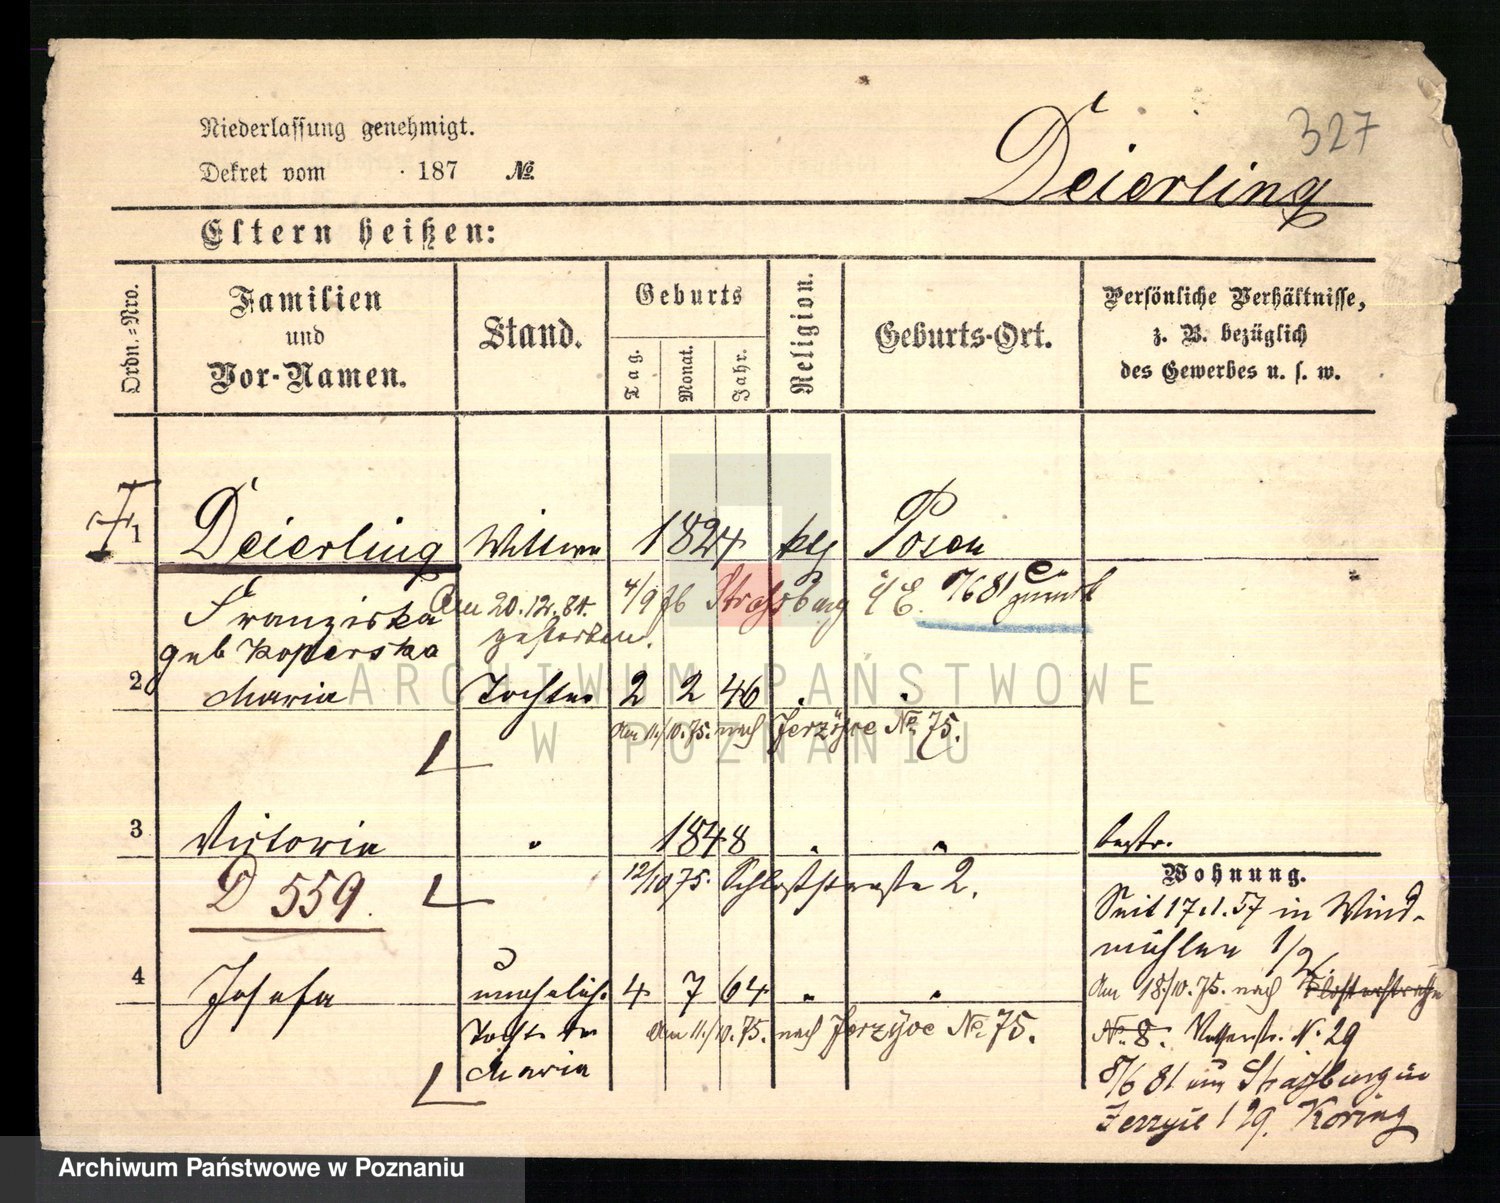 327
Niederlassung genehmigt.
Dekret vom 187 №
Deierling
Eltern heißen:
Ordn.-Nro.
Familien und Vor-Namen.
Stand.
Geburts
Tag. Monat. Jahr.
Religion.
Geburts-Ort.
Persönliche Verhältnisse,
z. B. bezüglich
des Gewerbes u. s. w.
1 Deierling Wittwe 1824 ktl Posen
Franziska Am 20.12.84. 4/9 76 Strassburg i/E. 8/6 81 zurück
gestorben.
geb Koperska
2 Maria Tochter 2 2 46 " "
Am 11./10.75. nach Jerzyce № 75.
3 Victoria " 1848 " " bestr.
12/10 75. Schloßstraße 2.
D 559.
Wohnung.
Seit 17.1.57 in Wind-
mühlen 1/2.
4 Josefa unehelich. 4 7 64 " "
Am 18/10.75. nach Klosterstraße
Tochter der Am 11./10.75. nach Jerzyce № 75.
№ 8. N. 29
Maria
8/6 81 aus Strassburg in
Jerzyce 129. Koring
ARCHIWUM PAŃSTWOWE
W POZNANIU
Archiwum Państwowe w Poznaniu